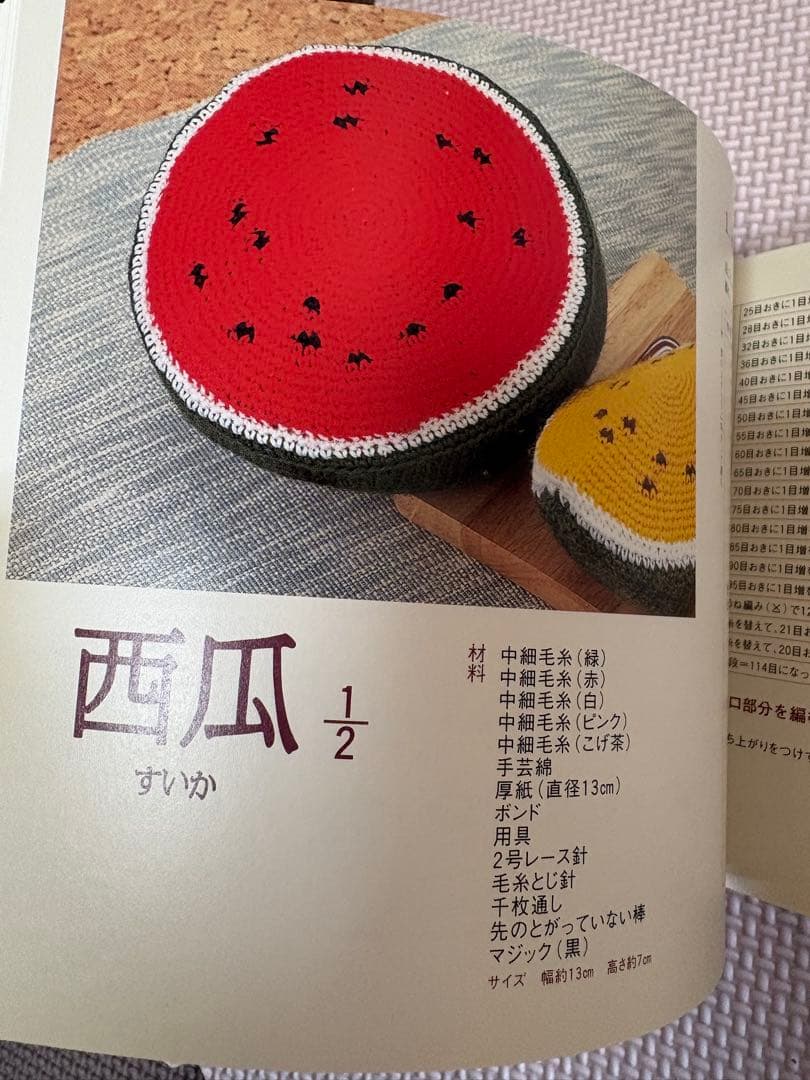 西瓜 1/2
すいか
材料
中細毛糸(緑)
中細毛糸(赤)
中細毛糸(白)
中細毛糸(ピンク)
中細毛糸(こげ茶)
手芸綿
厚紙(直径13cm)
ボンド
用具
2号レース針
毛糸とじ針
千枚通し
先のとがっていない棒
マジック(黒)
サイズ 幅約13cm 高さ約7cm
25目おきに1目増
28目おきに1目増
32目おきに1目増
36目おきに1目増
40目おきに1目増
45目おきに1目増
50目おきに1目増
55目おきに1目増
60目おきに1目増
65目おきに1目増
70目おきに1目増
75目おきに1目増
80目おきに1目増
85目おきに1目増
90目おきに1目増
95目おきに1目増
ね編み(×)で12
を替えて、21目お
を替えて、20目お
段=114目になっ
口部分を編
ち上がりをつけ